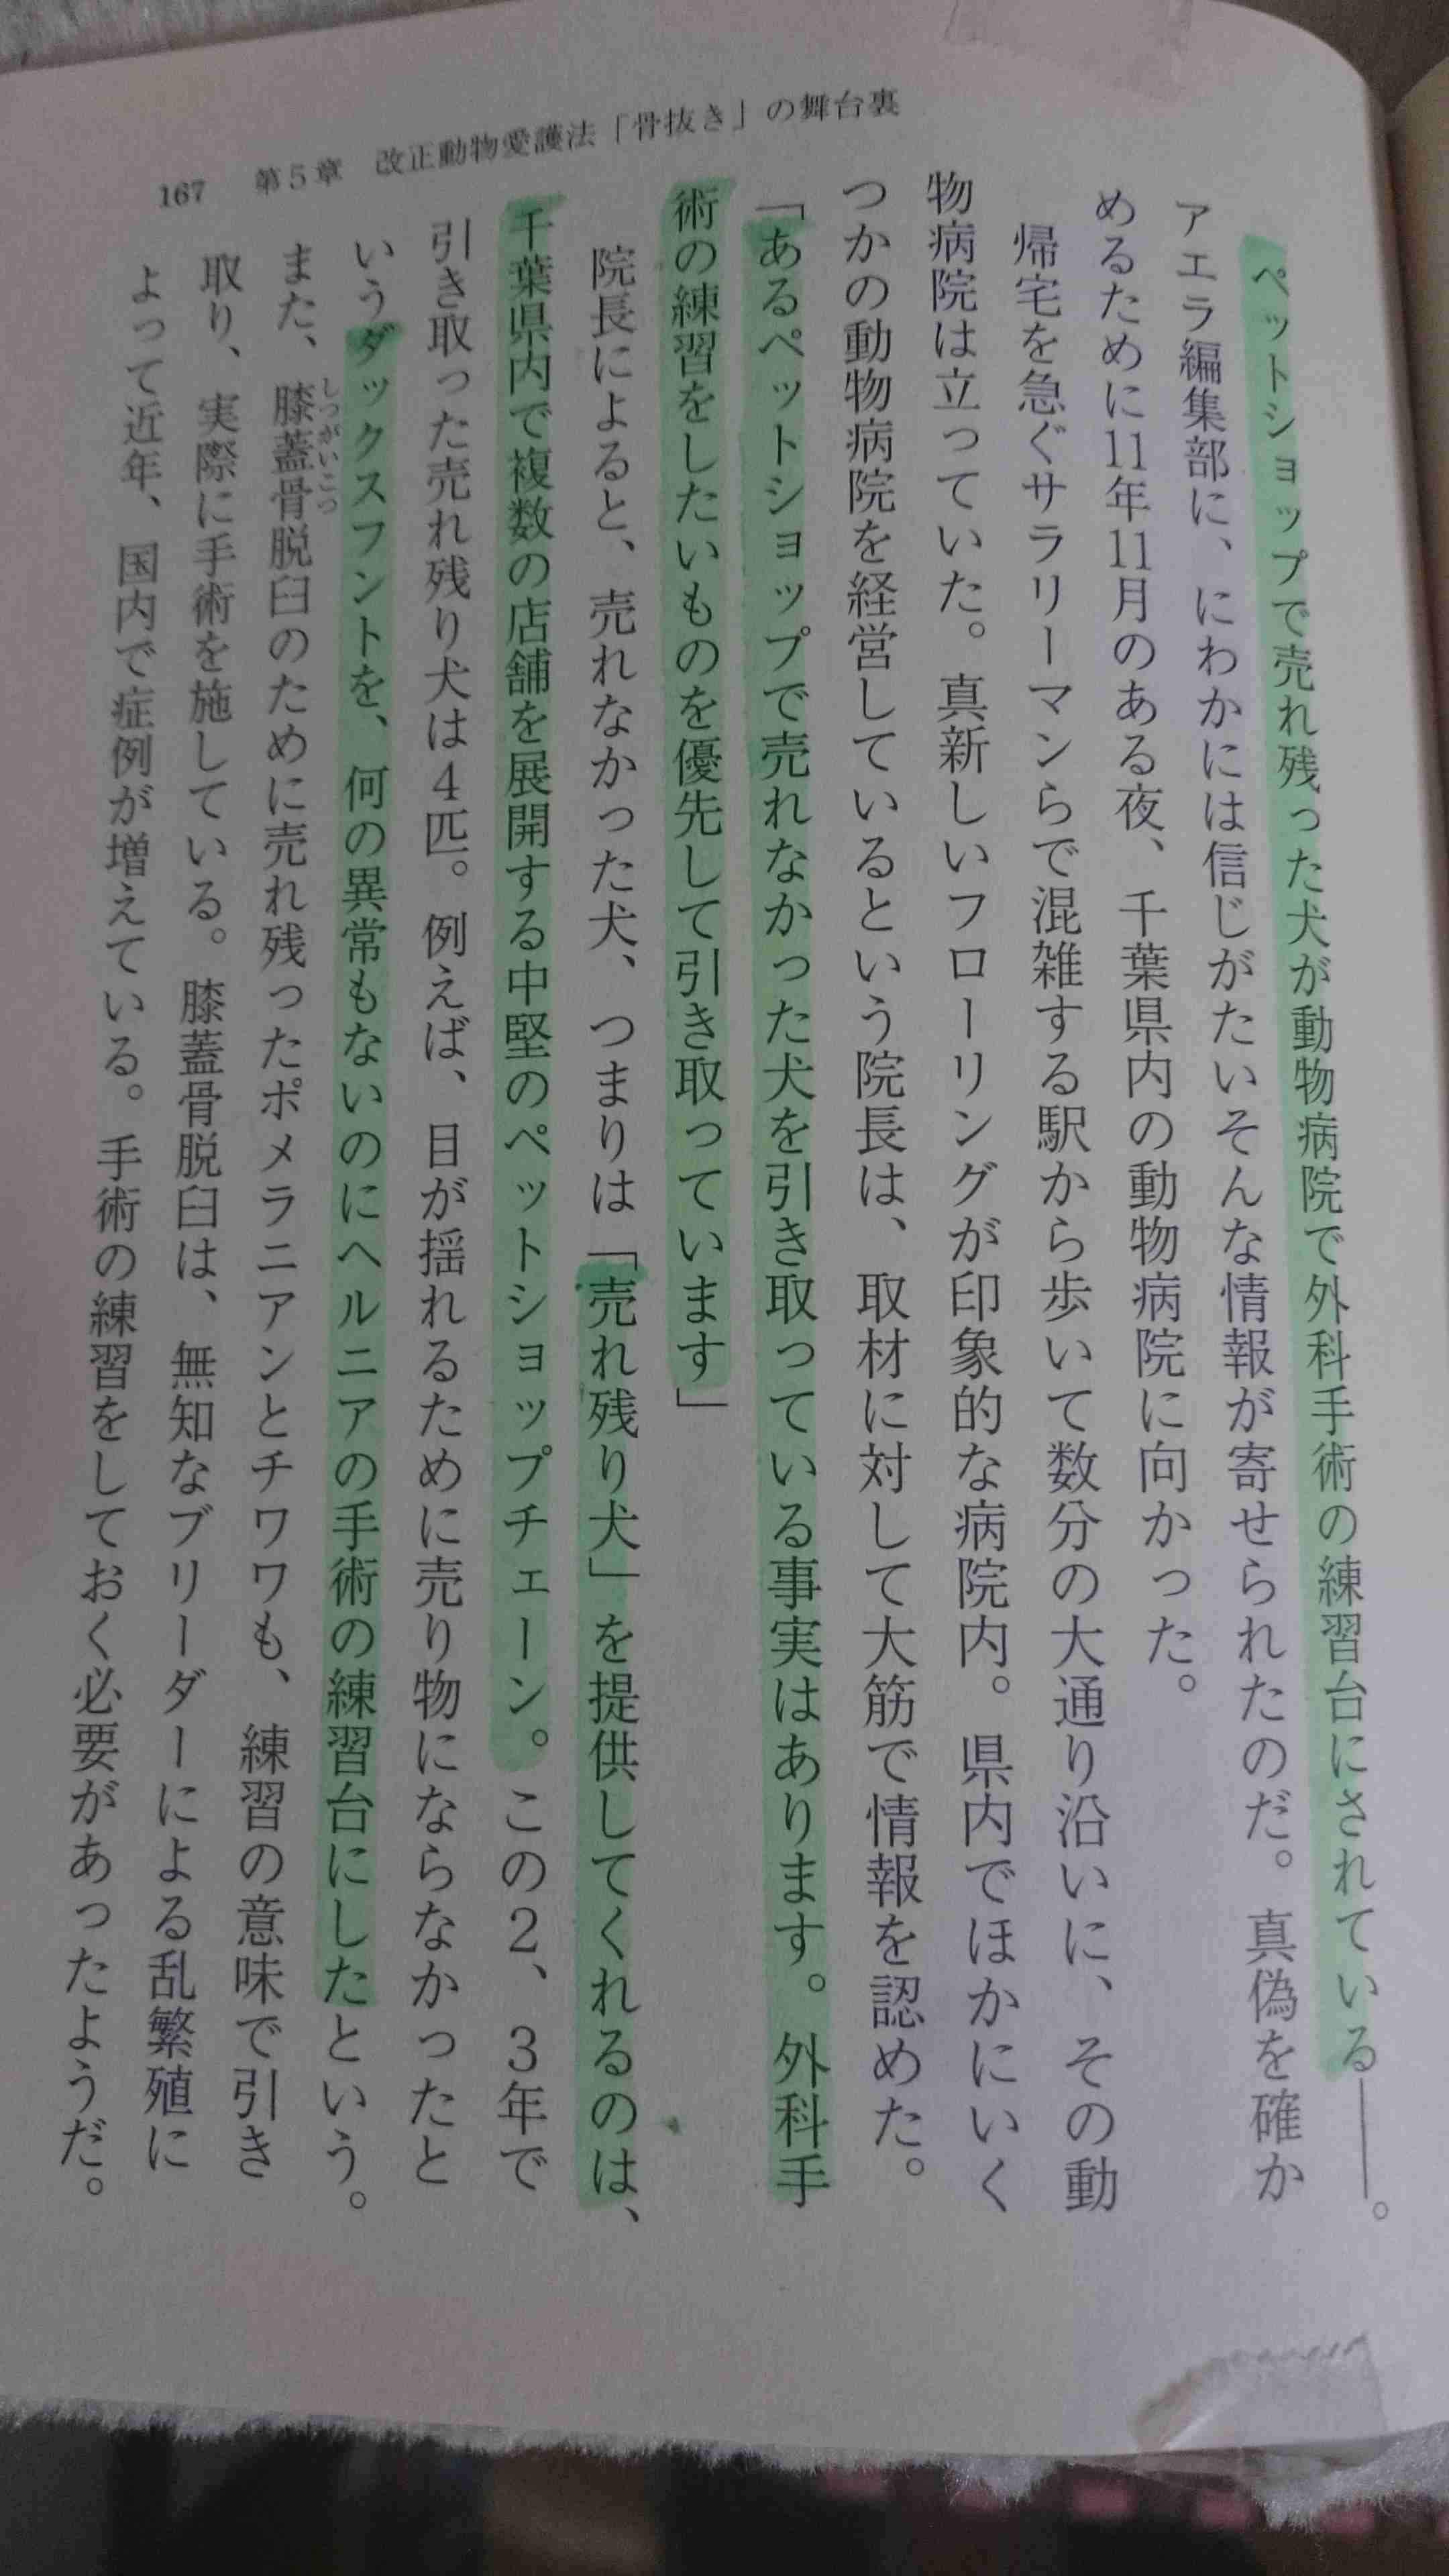 167 第5章 改正動物愛護法「骨抜き」の舞台裏
ペットショップで売れ残った犬が動物病院で外科手術の練習台にされている――。
アエラ編集部に、にわかには信じがたいそんな情報が寄せられたのだ。真偽を確か
めるために11年11月のある夜、千葉県内の動物病院に向かった。
帰宅を急ぐサラリーマンらで混雑する駅から歩いて数分の大通り沿いに、その動
物病院は立っていた。真新しいフローリングが印象的な病院内。県内でほかにいく
つかの動物病院を経営しているという院長は、取材に対して大筋で情報を認めた。
「あるペットショップで売れなかった犬を引き取っている事実はあります。外科手
術の練習をしたいものを優先して引き取っています」
院長によると、売れなかった犬、つまりは「売れ残り犬」を提供してくれるのは、
千葉県内で複数の店舗を展開する中堅のペットショップチェーン。この2、3年で
引き取った売れ残り犬は4匹。例えば、目が揺れるために売り物にならなかったと
いうダックスフントを、何の異常もないのにヘルニアの手術の練習台にしたという。
また、膝蓋骨脱臼のために売れ残ったポメラニアンとチワワも、練習の意味で引き
しつがいこつ
取り、実際に手術を施している。膝蓋骨脱臼は、無知なブリーダーによる乱繁殖に
よって近年、国内で症例が増えている。手術の練習をしておく必要があったようだ。